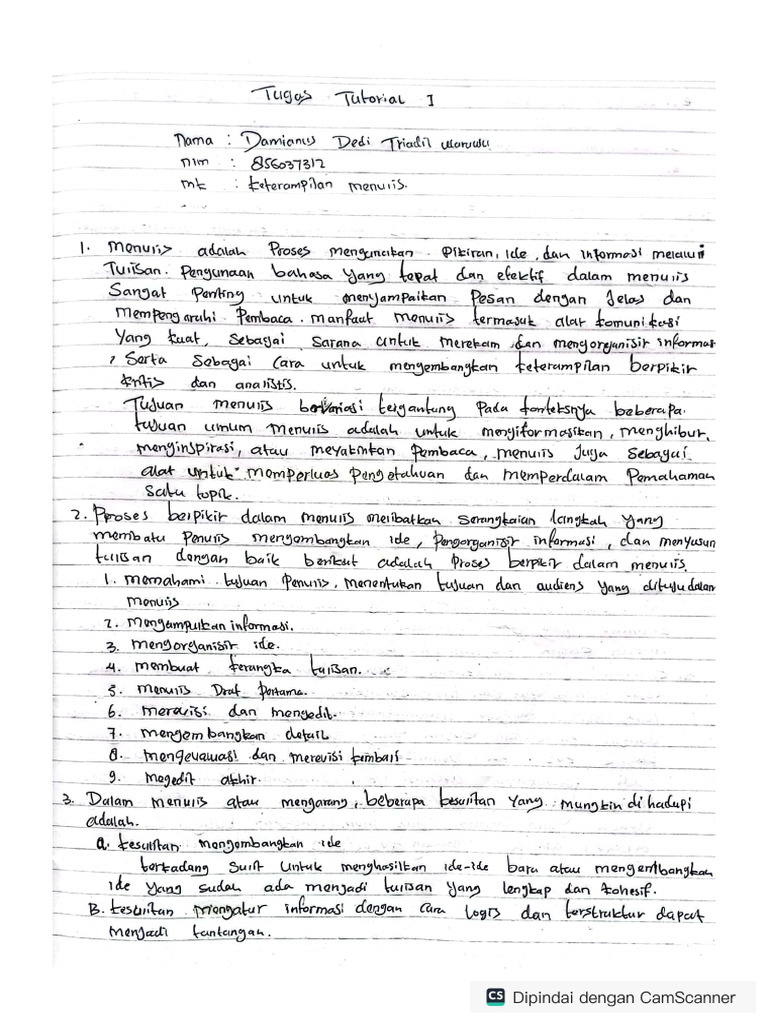 Tugas Tutorial I
Nama : Damianus Dedi Triadil waruwu
nim : 856037312
mk : keterampilan menulis.
1. menulis adalah Proses menguncikan Pikiran, ide, dan informasi melalui
Tulisan. Pengunaan bahasa yang tepat dan efektif dalam menulis
Sangat Penting untuk menyampaikan Pesan dengan Jelas dan
mempengaruhi Pembaca. manfaat menulis termasuk alat komunikasi
Yang kuat, Sebagai Sarana untuk merekam dan mengorganisir informasi
, Serta Sebagai Cara untuk mengembangkan keterampilan berpikir
kritis dan analistis.
Tujuan menulis bervariasi tergantung Pada konteksnya beberapa
tujuan umum menulis adalah untuk mengiformasikan, menghibur,
menginspirasi, atau meyakinkan Pembaca, menulis Juga Sebagai
alat untuk memperluas Pengetahuan dan memperdalam Pemahaman
Satu topik.
2. Proses berpikir dalam menulis melibatkan Serangkaian langkah yang
membatu Penulis mengembangkan ide, Pengorganisir informasi, dan menyusun
tulisan dengan baik berikut adalah Proses berpikir dalam menulis.
1. memahami tujuan Penulis, menentukan tujuan dan audiens yang dituju dalam
menulis
2. mengumpulkan informasi.
3. mengorganisir ide.
4. membuat kerangka tulisan.
5. menulis Draf Pertama.
6. merevisi dan mengedit.
7. mengembangkan detail
8. mengevaluasi dan merevisi kembali
9. megedit akhir.
3. Dalam menulis atau mengarang, beberapa kesulitan yang mungkin di hadapi
adalah.
a. kesulitan mengembangkan ide
terkadang sulit untuk menghasilkan ide-ide baru atau mengembangkan
ide yang sudah ada menjadi tulisan yang lengkap dan kohesif.
B. kesulitan mengatur informasi dengan cara logis dan terstruktur dapat
menjadi tantangan.
CS Dipindai dengan CamScanner